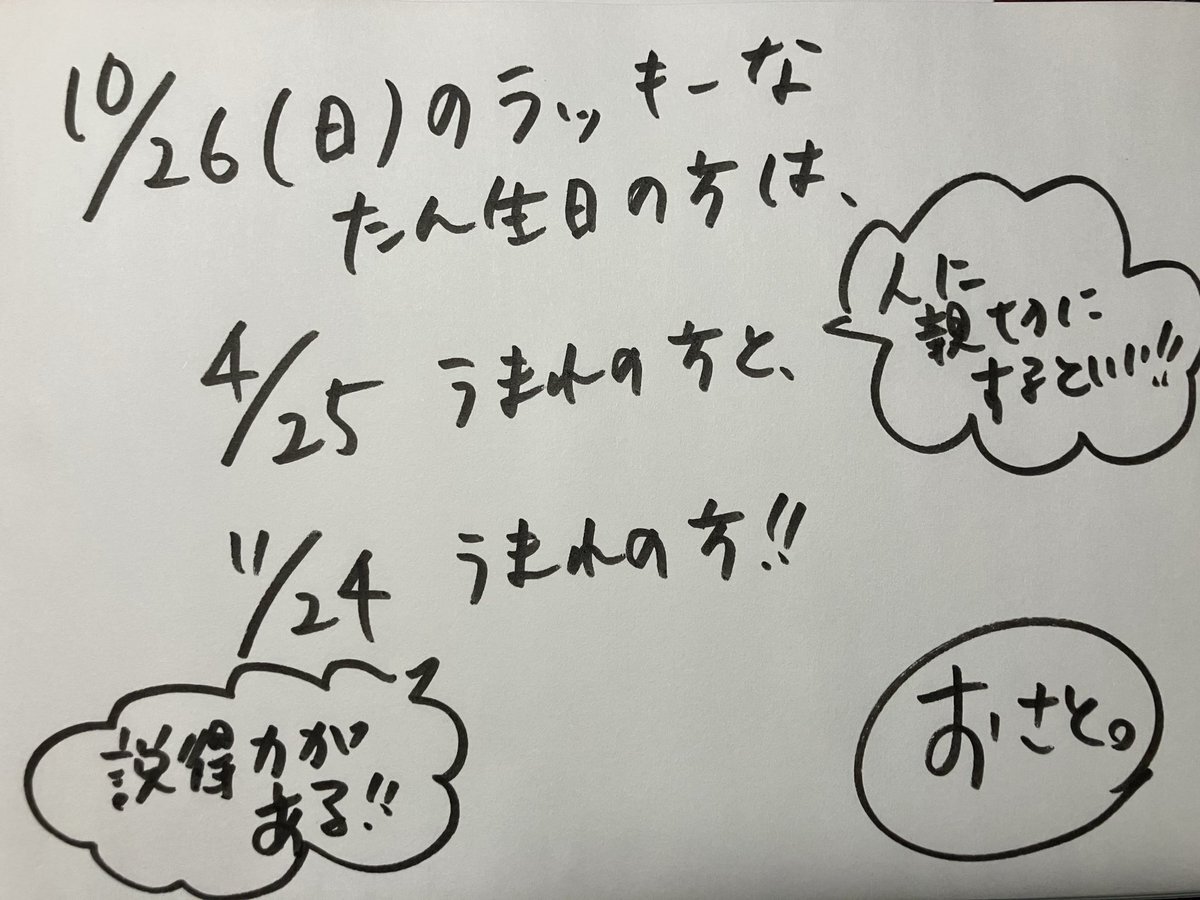 10/26(日)のラッキーな
たん生日の方は、
4/25 うまれの方と、
人に
親切に
するといい!!
11/24 うまれの方!!
説得力が
ある!!
おさと。